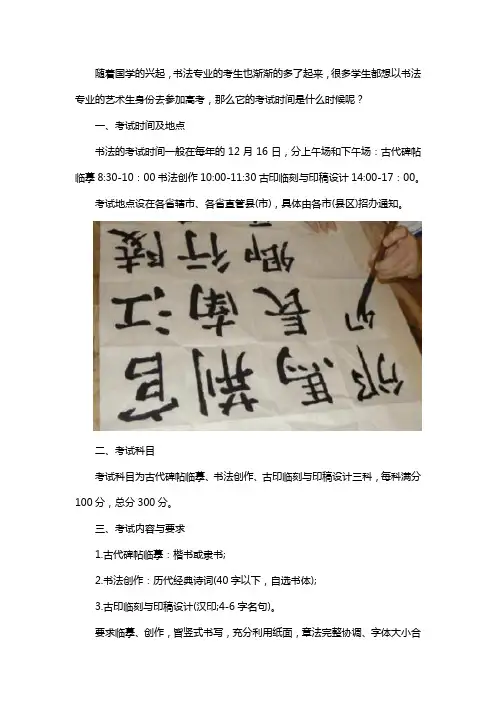 随着国学的兴起，书法专业的考生也渐渐的多了起来，很多学生都想以书法
专业的艺术生身份去参加高考，那么它的考试时间是什么时候呢？
一、考试时间及地点
书法的考试时间一般在每年的12月16日，分上午场和下午场：古代碑帖
临摹8:30-10：00书法创作10:00-11:30古印临刻与印稿设计14:00-17：00。
考试地点设在各省辖市、各省直管县(市)，具体由各市(县区)招办通知。
二、考试科目
考试科目为古代碑帖临摹、书法创作、古印临刻与印稿设计三科，每科满分
100分，总分300分。
三、考试内容与要求
1.古代碑帖临摹：楷书或隶书;
2.书法创作：历代经典诗词(40字以下，自选书体);
3.古印临刻与印稿设计(汉印;4-6字名句)。
要求临摹、创作，皆竖式书写，充分利用纸面，章法完整协调、字体大小合